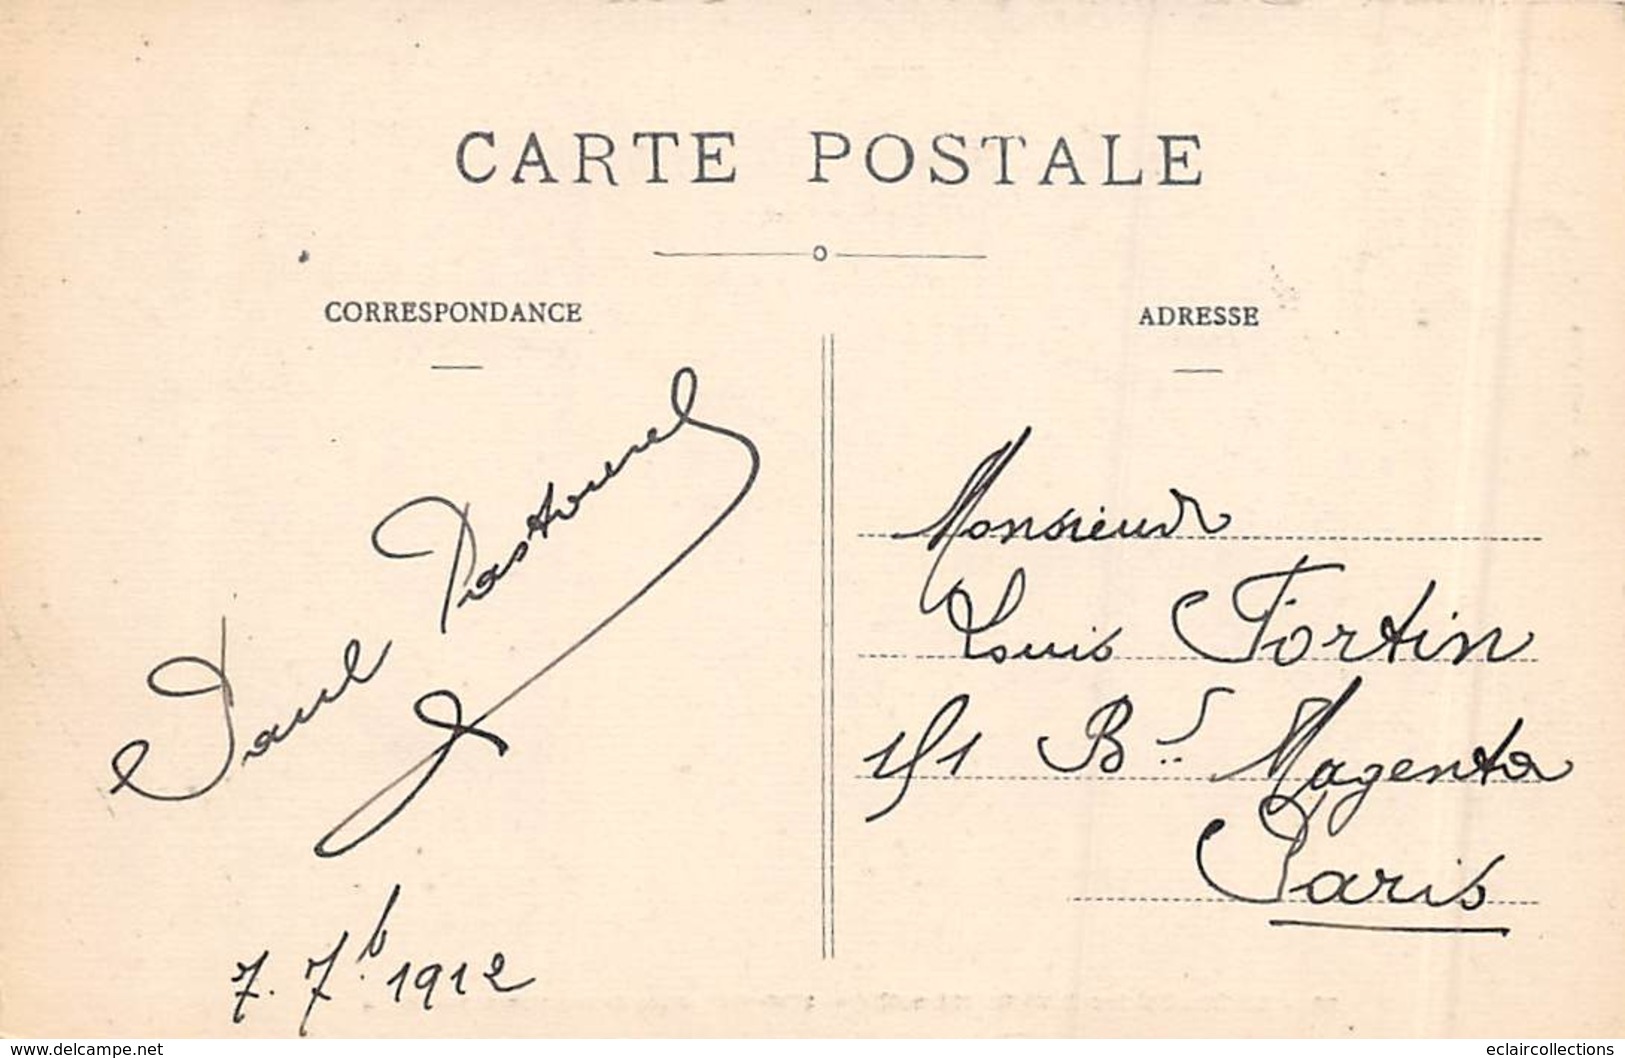 CARTE POSTALE
CORRESPONDANCE
ADRESSE
Paul Pastourel
7. 7b. 1912
Monsieur
Louis Fortin
151 Bd. Magenta
Paris
www.delcampe.net
eclaircollections